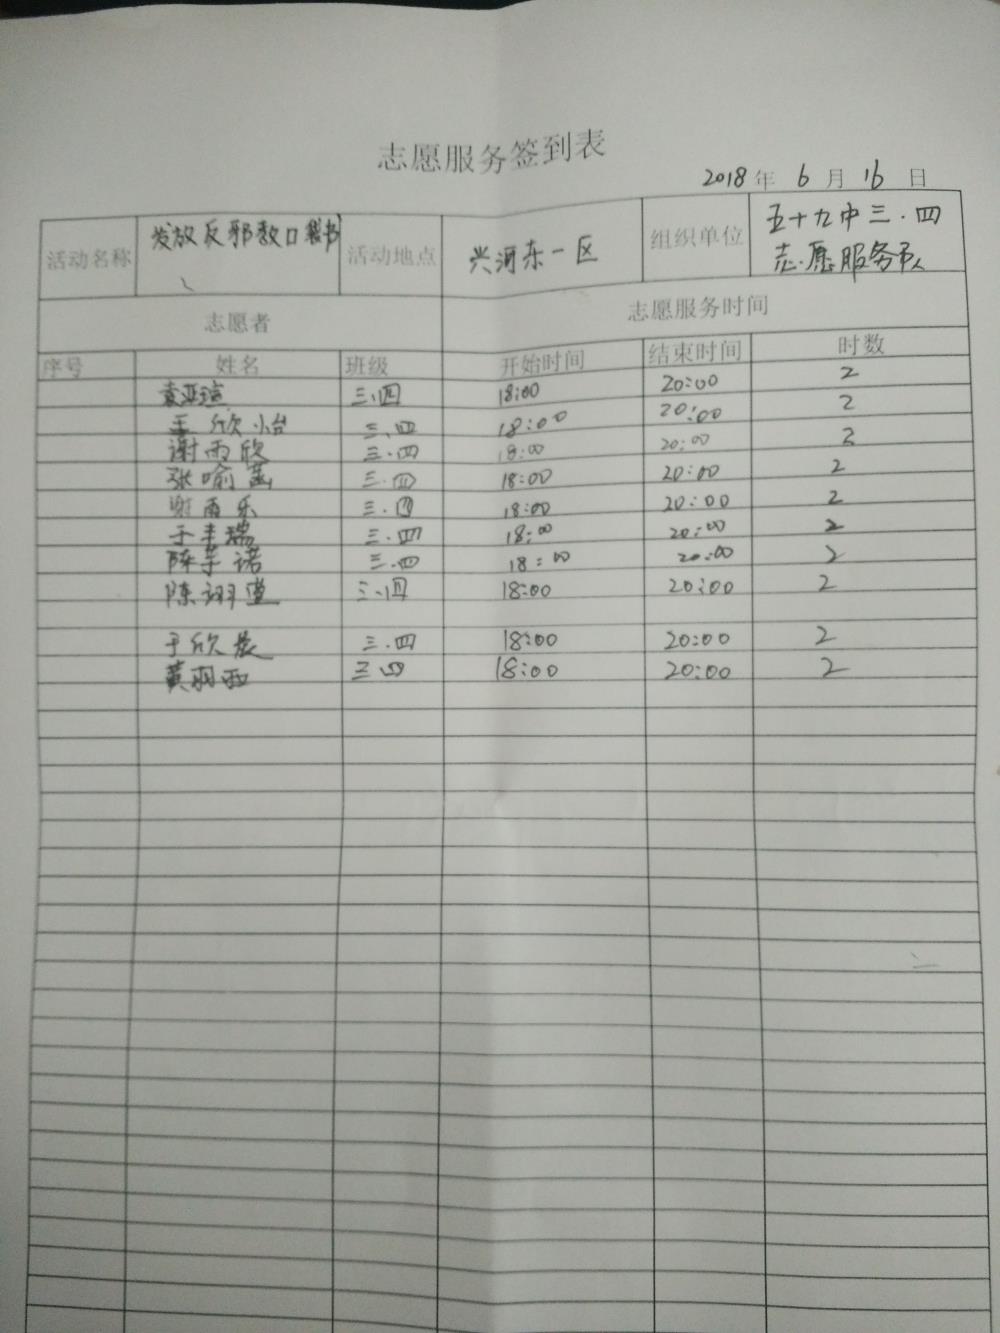 志愿服务签到表
2018 年 6 月 16 日
活动名称 发放反邪教口袋书 活动地点 兴河东一区 组织单位 五十九中三.四
志愿服务队
志愿者 志愿服务时间
序号 姓名 班级 开始时间 结束时间 时数
袁亚瑄 三.四 18:00 20:00 2
王欣怡 三.四 18:00 20:00 2
谢雨欣 三.四 18:00 20:00 2
张喻菡 三.四 18:00 20:00 2
谢雨乐 三.四 18:00 20:00 2
于丰瑞 三.四 18:00 20:00 2
陈芊诺 三.四 18:00 20:00 2
陈翊萱 三.四 18:00 20:00 2
于欣辰 三.四 18:00 20:00 2
黄羽西 三四 18:00 20:00 2